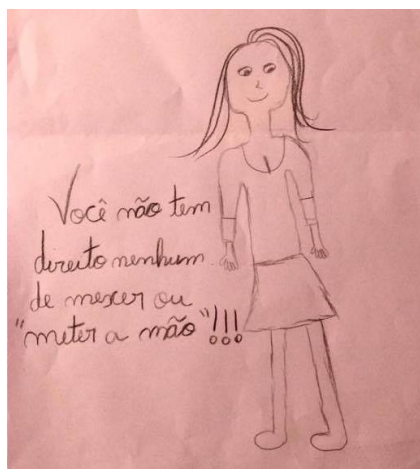 Você não tem
direito nenhum
de mexer ou
"meter a mão"!!!